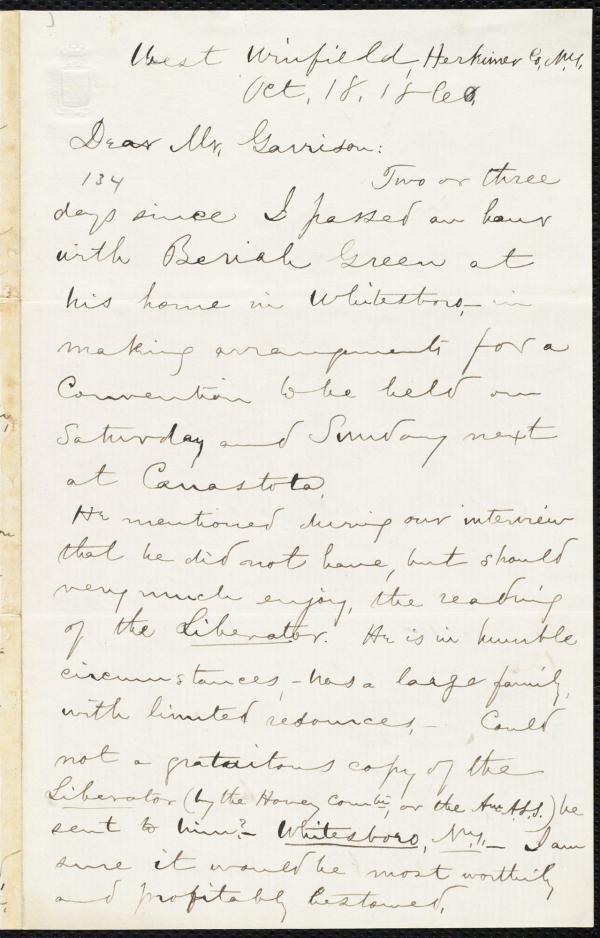 West Winfield, Herkimer Co., N.Y.,
Oct. 18, 1860.
Dear Mr. Garrison:
134
Two or three
days since I passed an hour
with Beriah Green at
his home in Whitesboro,- in
making arrangements for a
Convention to be held on
Saturday and Sunday next
at Canastota.
He mentioned during our interview
that he did not have, but should
very much enjoy, the reading
of the Liberator. He is in humble
circumstances, - has a large family,
with limited resources. - Could
not a gratuitous copy of the
Liberator (by the Hovey Comtee, or the Am. A.S.S.) be
sent to him? - Whitesboro, N.Y. - I am
sure it would be most worthily
and profitably bestowed.